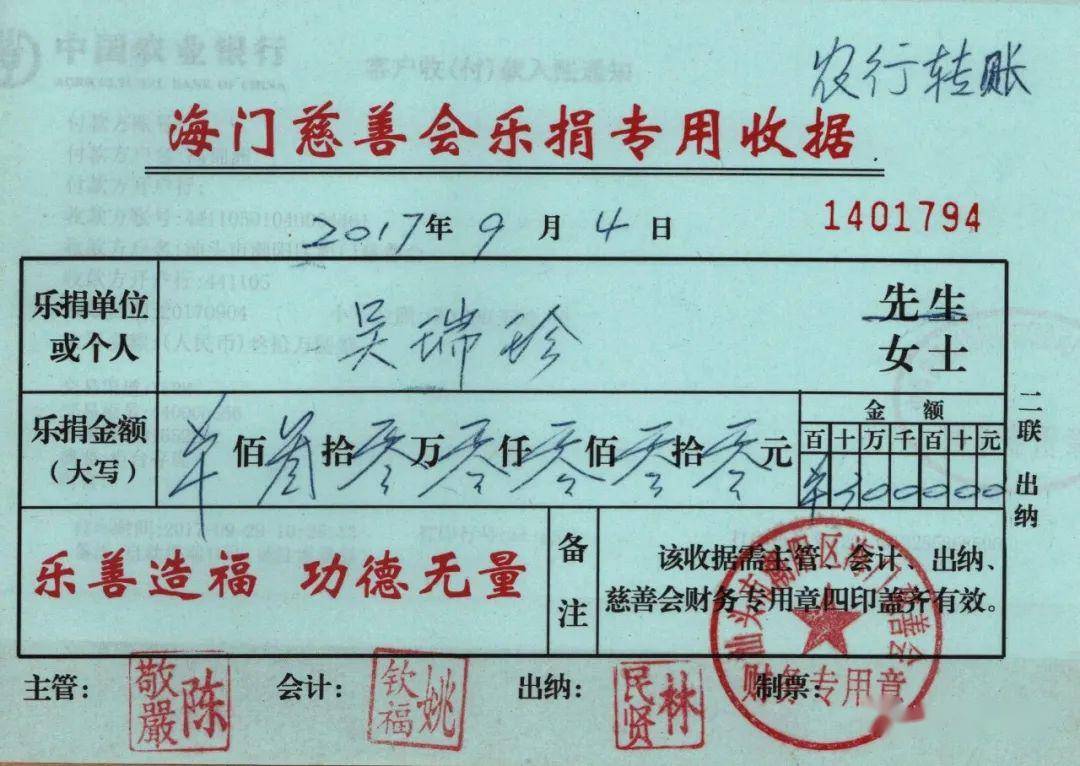 中国农业银行
AGRICULTURAL BANK OF CHINA
客户收(付)款入账通知
农行转账
海门慈善会乐捐专用收据
2017年9月4日
1401794
乐捐单位或个人
吴瑞珍
先生
女士
乐捐金额(大写)
佰叁拾零万零仟零佰零拾零元
金额
百十万千百十元
300000
二联出纳
乐善造福 功德无量
备注
该收据需主管、会计、出纳、
慈善会财务专用章四印盖齐有效。
主管:
陈敬嚴
会计:
姚钦福
出纳:
林民贤
制票:
汕头市潮阳区海门慈善会
财务专用章
付款方开户行:
收款方开户行:441105
20170904